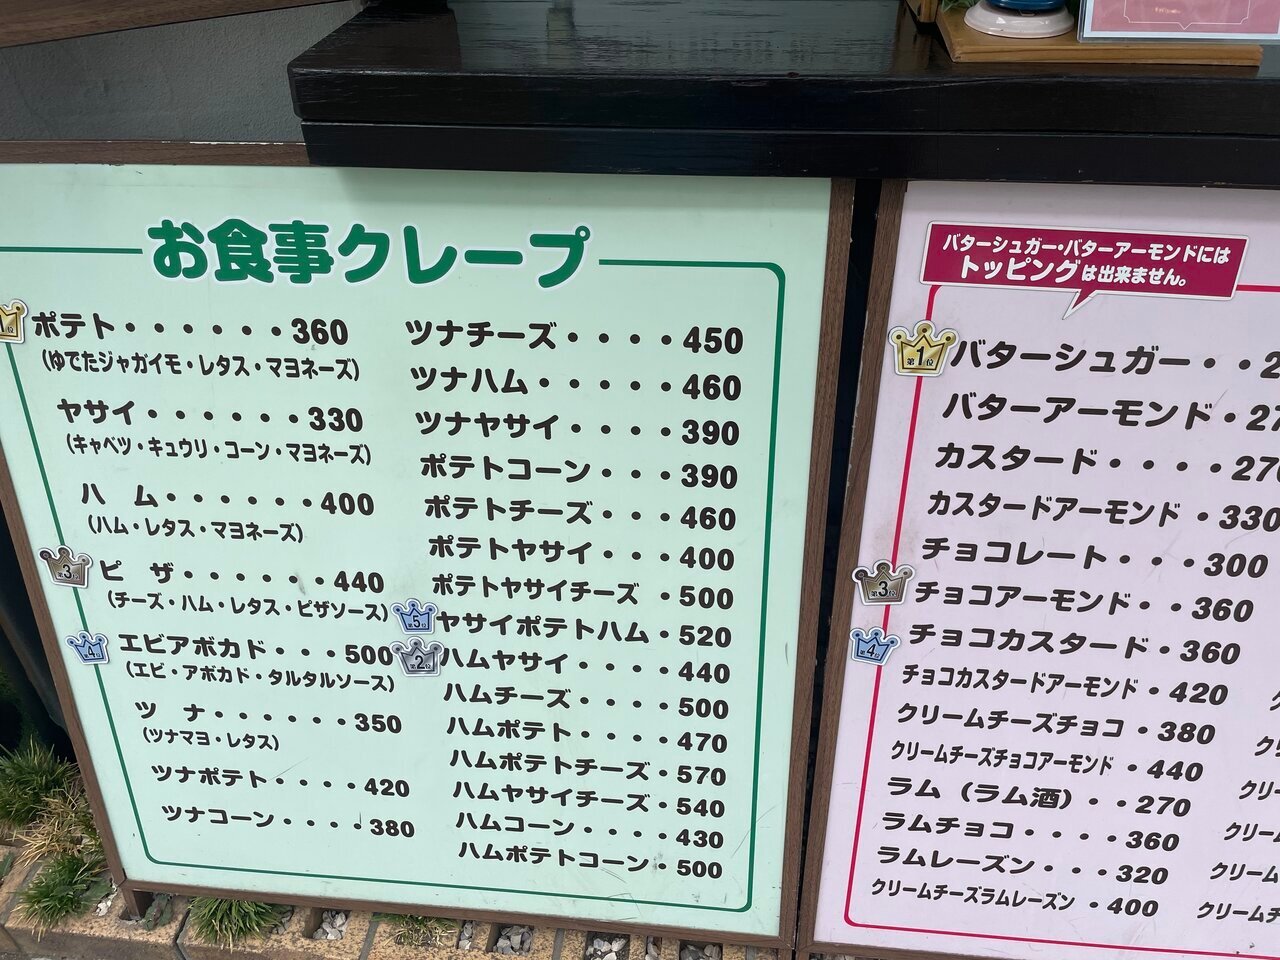 お食事クレープ
1位
ポテト・・・・・・360
(ゆでたジャガイモ・レタス・マヨネーズ)
ヤサイ・・・・・・330
(キャベツ・キュウリ・コーン・マヨネーズ)
ハ ム・・・・・・400
(ハム・レタス・マヨネーズ)
第3位
ピ ザ・・・・・・440
(チーズ・ハム・レタス・ピザソース)
第4位
エビアボカド・・・500
(エビ・アボカド・タルタルソース)
ツ ナ・・・・・・350
(ツナマヨ・レタス)
ツナポテト・・・・420
ツナコーン・・・・380
ツナチーズ・・・・450
ツナハム・・・・・460
ツナヤサイ・・・・390
ポテトコーン・・・390
ポテトチーズ・・・460
ポテトヤサイ・・・400
ポテトヤサイチーズ ・500
第5位
ヤサイポテトハム・520
第2位
ハムヤサイ・・・・440
ハムチーズ・・・・500
ハムポテト・・・・470
ハムポテトチーズ・570
ハムヤサイチーズ・540
ハムコーン・・・・430
ハムポテトコーン・500
バターシュガー・バターアーモンドには
トッピングは出来ません。
第1位
バターシュガー・・2
バターアーモンド・27
カスタード・・・・270
カスタードアーモンド ・330
チョコレート・・・300
第3位
チョコアーモンド・・360
第4位
チョコカスタード・360
チョコカスタードアーモンド・420
クリームチーズチョコ・380
クリームチーズチョコアーモンド・440
ラム(ラム酒)・・270
ラムチョコ・・・・360
ラムレーズン・・・320
クリームチーズラムレーズン・400
ク
クリ
クリー
クリーム
クリーム
クリームチ